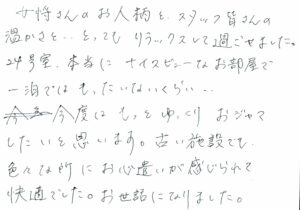 女将さんのお人柄と、スタッフ皆さんの
温かさと…とってもリラックスして過ごせました。
24号室、本当にナイスビューなお部屋で
一泊ではもったいないくらい…
今度はもっとゆっくりおジャマ
したいと思います。古い施設でも
色々な所にお心遣いが感じられて
快適でした。お世話になりました。